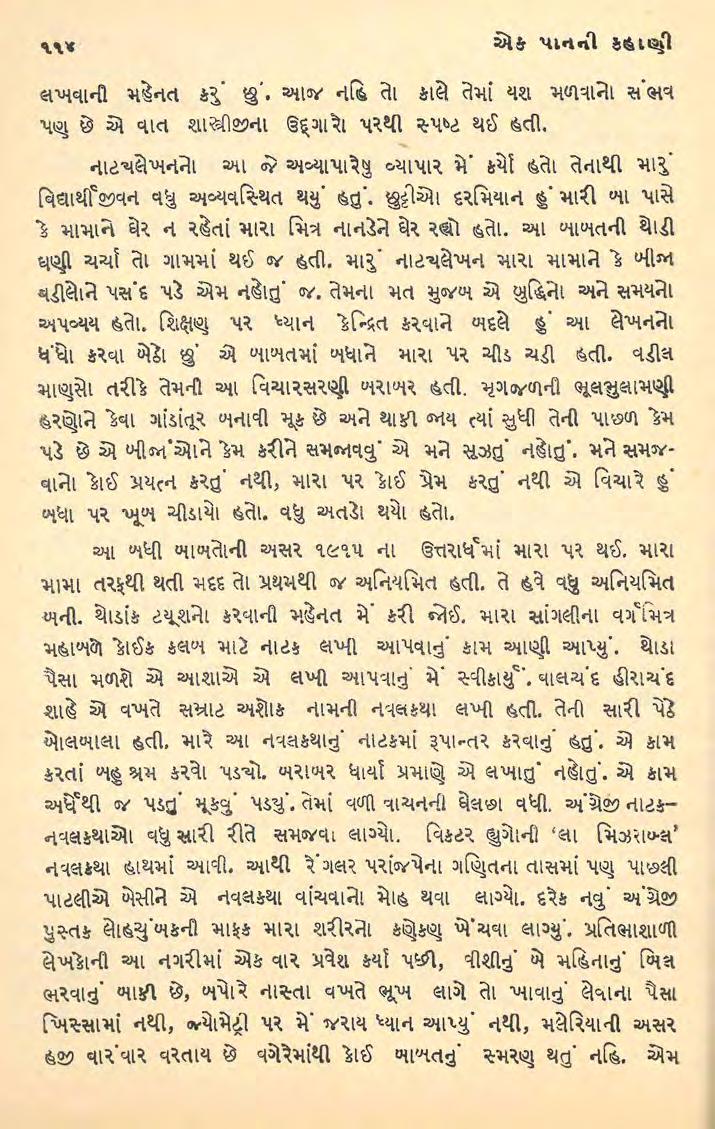 ૧૧૪ એક પાનની કહાણી
લખવાની મહેનત કરું છું. આજ નહિ તો કાલે તેમાં યશ મળવાનો સંભવ
પણ છે એ વાત શાસ્ત્રીજીના ઉદ્ગારો પરથી સ્પષ્ટ થઈ હતી.
નાટચલેખનનો આ જે અવ્યાપારેષુ વ્યાપાર મેં કર્યો હતો તેનાથી મારું
વિદ્યાર્થીજીવન વધુ અવ્યવસ્થિત થયું હતું. છુટ્ટીઓ દરમિયાન હું મારી બા પાસે
કે મામાને ઘેર ન રહેતાં મારા મિત્ર નાનડેને ઘેર રહ્યો હતો. આ બાબતની થોડી
ઘણી ચર્ચા તો ગામમાં થઈ જ હતી. મારું નાટચલેખન મારા મામાને કે બીજા
વડીલોને પસંદ પડે એમ નહોતું જ. તેમના મત મુજબ એ બુદ્ધિનો અને સમયનો
અપવ્યય હતો. શિક્ષણ પર ધ્યાન કેન્દ્રિત કરવાને બદલે હું આ લેખનનો
ધંધો કરવા બેઠો છું એ બાબતમાં બધાને મારા પર ચીડ ચડી હતી. વડીલ
માણુસો તરીકે તેમની આ વિચારસરણી બરાબર હતી. મૃગજળની ભૂલભુલામણી
હરણોને કેવા ગાંડાંતૂર બનાવી મૂકે છે અને થાકી જાય ત્યાં સુધી તેની પાછળ કેમ
પડે છે એ બીજાંઓને કેમ કરીને સમજાવવું એ મને સૂઝતું નહોતું. મને સમજ-
વાનો કોઈ પ્રયત્ન કરતું નથી, મારા પર કોઈ પ્રેમ કરતું નથી એ વિચારે હું
બધા પર ખૂબ ચીડાયો હતો. વધુ અતડો થયો હતો.
આ બધી બાબતોની અસર ૧૯૧૫ ના ઉત્તરાર્ધમાં મારા પર થઈ. મારા
મામા તરફથી થતી મદદ તો પ્રથમથી જ અનિયમિત હતી. તે હવે વધુ અનિયમિત
બની. થોડાંક ટયૂશનો કરવાની મહેનત મેં કરી જોઈ. મારા સાંગલીના વર્ગમિત્ર
મહાબળે કોઈક કલબ માટે નાટક લખી આપવાનું કામ આણી આપ્યું. થોડા
પૈસા મળશે એ આશાએ એ લખી આપવાનું મેં સ્વીકાર્યું. વાલચંદ હીરાચંદ
શાહે એ વખતે સમ્રાટ અશોક નામની નવલકથા લખી હતી. તેની સારી પેઠે
બોલબાલા હતી. મારે આ નવલકથાનું નાટકમાં રૂપાન્તર કરવાનું હતું. એ કામ
કરતાં બહુ શ્રમ કરવો પડચો. બરાબર ધાર્યા પ્રમાણે એ લખાતું નહોતું. એ કામ
અર્ધેથી જ પડતું મૂકવું પડયું. તેમાં વળી વાચનની ઘેલછા વધી. અંગ્રેજી નાટક–
નવલકથાઓ વધુ સારી રીતે સમજવા લાગ્યો. વિકટર હ્યુગોની ‘લા મિઝરાબ્લ’
નવલકથા હાથમાં આવી. આથી રેંગલર પરાંજપેના ગણિતના તાસમાં પણ પાછલી
પાટલીએ બેસીને એ નવલકથા વાંચવાનો મોહ થવા લાગ્યો. દરેક નવું અંગ્રેજી
પુસ્તક લોહચુંબકની માફક મારા શરીરનો કણેકણ ખેંચવા લાગ્યું. પ્રતિભાશાળી
લેખકોની આ નગરીમાં એક વાર પ્રવેશ કર્યા પછી, વીશીનું બે મહિનાનું બિલ
ભરવાનું બાકી છે, બપોરે નાસ્તા વખતે ભૂખ લાગે તો ખાવાનું લેવાના પૈસા
ખિસ્સામાં નથી, જ્યોમેટ્રી પર મેં જરાય ધ્યાન આપ્યું નથી, મલેરિયાની અસર
હજી વારંવાર વરતાય છે વગેરેમાંથી કોઈ બાબતનું સ્મરણ થતું નહિ. એમ